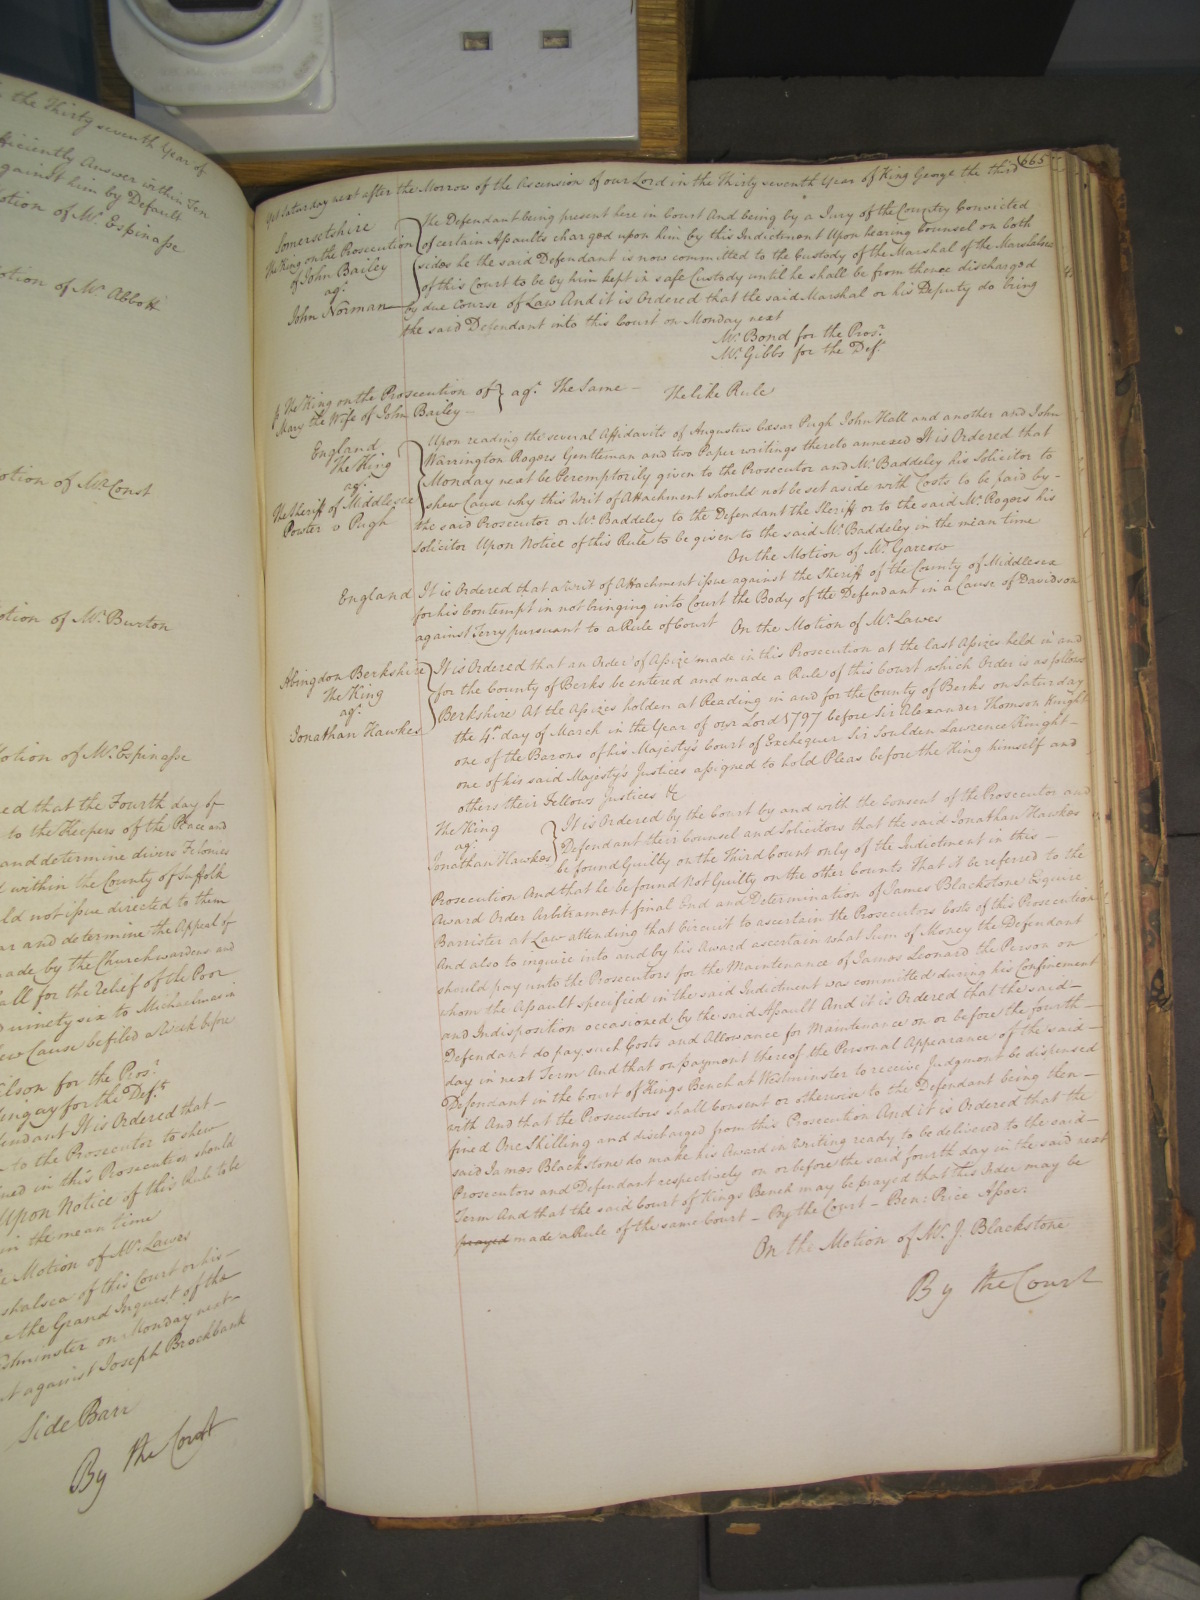 in the Thirty seventh Year of
fficiently Answer within Ten
gainst him by Default
otion of Mr. Espinasse
otion of Mr. Abbott
otion of Mr. Const
otion of Mr. Burton
otion of Mr. Espinasse
ed that the Fourth day of
to the Keepers of the Peace and
and determine divers Felonies
d within the County of Suffolk
ld not issue directed to them
ar and determine the Appeal of
made by the Churchwardens and
all for the relief of the Poor
d ninety six to Michaelmas in
ew Cause be filed a Week before
ilson for the Pros:
for the Deft.
fendant It is Ordered that
to the Prosecutor to shew
ued in this Prosecution should
Upon Notice of this Rule to be
in the mean time
e Motion of Mr. Lawes
shalsea of this Court or his
e the Grand Inquest of the
stminster on Monday next
nt against Joseph Brockbank
Side Barr
By the Court
665
Yet Saturday next after the Morrow of the Ascension of our Lord in the Thirty seventh Year of King George the third
Somersetshire
The King on the Prosecution
of John Bailey
agt.
John Norman
The Defendant being present here in Court And being by a Jury of the Country Convicted
of certain Assaults charged upon him by this Indictment Upon hearing Counsel on both
sides he the said Defendant is now committed to the Custody of the Marshal of the Marshalsea
of this Court to be by him kept in safe Custody until he shall be from thence discharged
by due Course of Law And it is Ordered that the said Marshal or his Deputy do bring
the said Defendant into this Court on Monday next
Mr. Bond for the Prosr.
Mr. Gibbs for the Deft.
The King on the Prosecution of } agt. The Same — The like Rule
Mary the Wife of John Bailey —
England
The King
agt.
The Sheriff of Middlesex
Powter v Pugh
Upon reading the several Affidavits of Augustus Cæsar Pugh John Hall and another and John
Warrington Rogers Gentleman and two Paper writings thereto annexed It is Ordered that
Monday next be Peremptorily given to the Prosecutor and Mr. Baddeley his Solicitor to
shew Cause why this Writ of Attachment should not be set aside with Costs to be paid by -
the said Prosecutor or Mr. Baddeley to the Defendant the Sheriff or to the said Mr. Rogers his
Solicitor Upon Notice of this Rule to be given to the said Mr. Baddeley in the mean time
On the Motion of Mr. Garrow
England It is Ordered that a Writ of Attachment issue against the Sheriff of the County of Middlesex
for his Contempt in not bringing into Court the Body of the Defendant in a Cause of Davidson
against Terry pursuant to a Rule of Court On the Motion of Mr. Lawes
Abingdon Berkshire
The King
agt.
Jonathan Hawkes
It is Ordered that an Order of Assize made in this Prosecution at the last Assizes held in and
for the County of Berks be entered and made a Rule of this Court which Order is as follows
Berkshire At the Assizes holden at Reading in and for the County of Berks on Saturday
the 4th. day of March in the Year of our Lord 1797 before Sir Alexander Thomson Knight
one of the Barons of his Majesty's Court of Exchequer Sir Soulden Lawrence Knight -
one of his said Majesty's Justices assigned to hold Pleas before the King himself and
others their Fellows Justices &c
The King
agt.
Jonathan Hawkes
It is Ordered by the Court by and with the Consent of the Prosecutor and
Defendant their Counsel and Solicitors that the said Jonathan Hawkes
be found Guilty on the Third Count only of the Indictment in this —
Prosecution And that he be found Not Guilty on the other Counts That it be referred to the
Award Order Arbitrament final End and Determination of James Blackstone Esquire
Barrister at Law attending that Circuit to ascertain the Prosecutors Costs of this Prosecution
And also to inquire into and by his Award ascertain what Sum of Money the Defendant
should pay unto the Prosecutors for the Maintenance of James Leonard the Person on
whom the Assault specified in the said Indictment was committed during his Confinement
and Indisposition occasioned by the said Assault And it is Ordered that the said -
Defendant do pay such Costs and Allowance for Maintenance on or before the fourth —
day in next Term And that on payment thereof the Personal Appearance of the said —
Defendant in the Court of Kings Bench at Westminster to receive Judgment be dispensed
with And that the Prosecutors shall Consent or otherwise to the Defendant being then —
fined One Shilling and discharged from this Prosecution And it is Ordered that the
said James Blackstone do make his Award in Writing ready to be delivered to the said -
Prosecutors and Defendant respectively on or before the said fourth day in the said next
Term And that the said Court of Kings Bench may be prayed that this Order may be
prayed made a Rule of the same Court — By the Court — Ben: Price Assoc:
On the Motion of Mr. J. Blackstone
By the Court